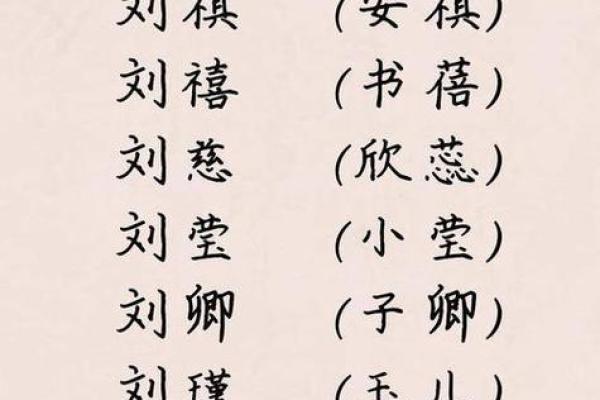 刘祺 (安祺)
刘禧 (书蓓)
刘慈 (欣蕊)
刘莹 (小莹)
刘卿 (子卿)
刘瑾 (玉儿)